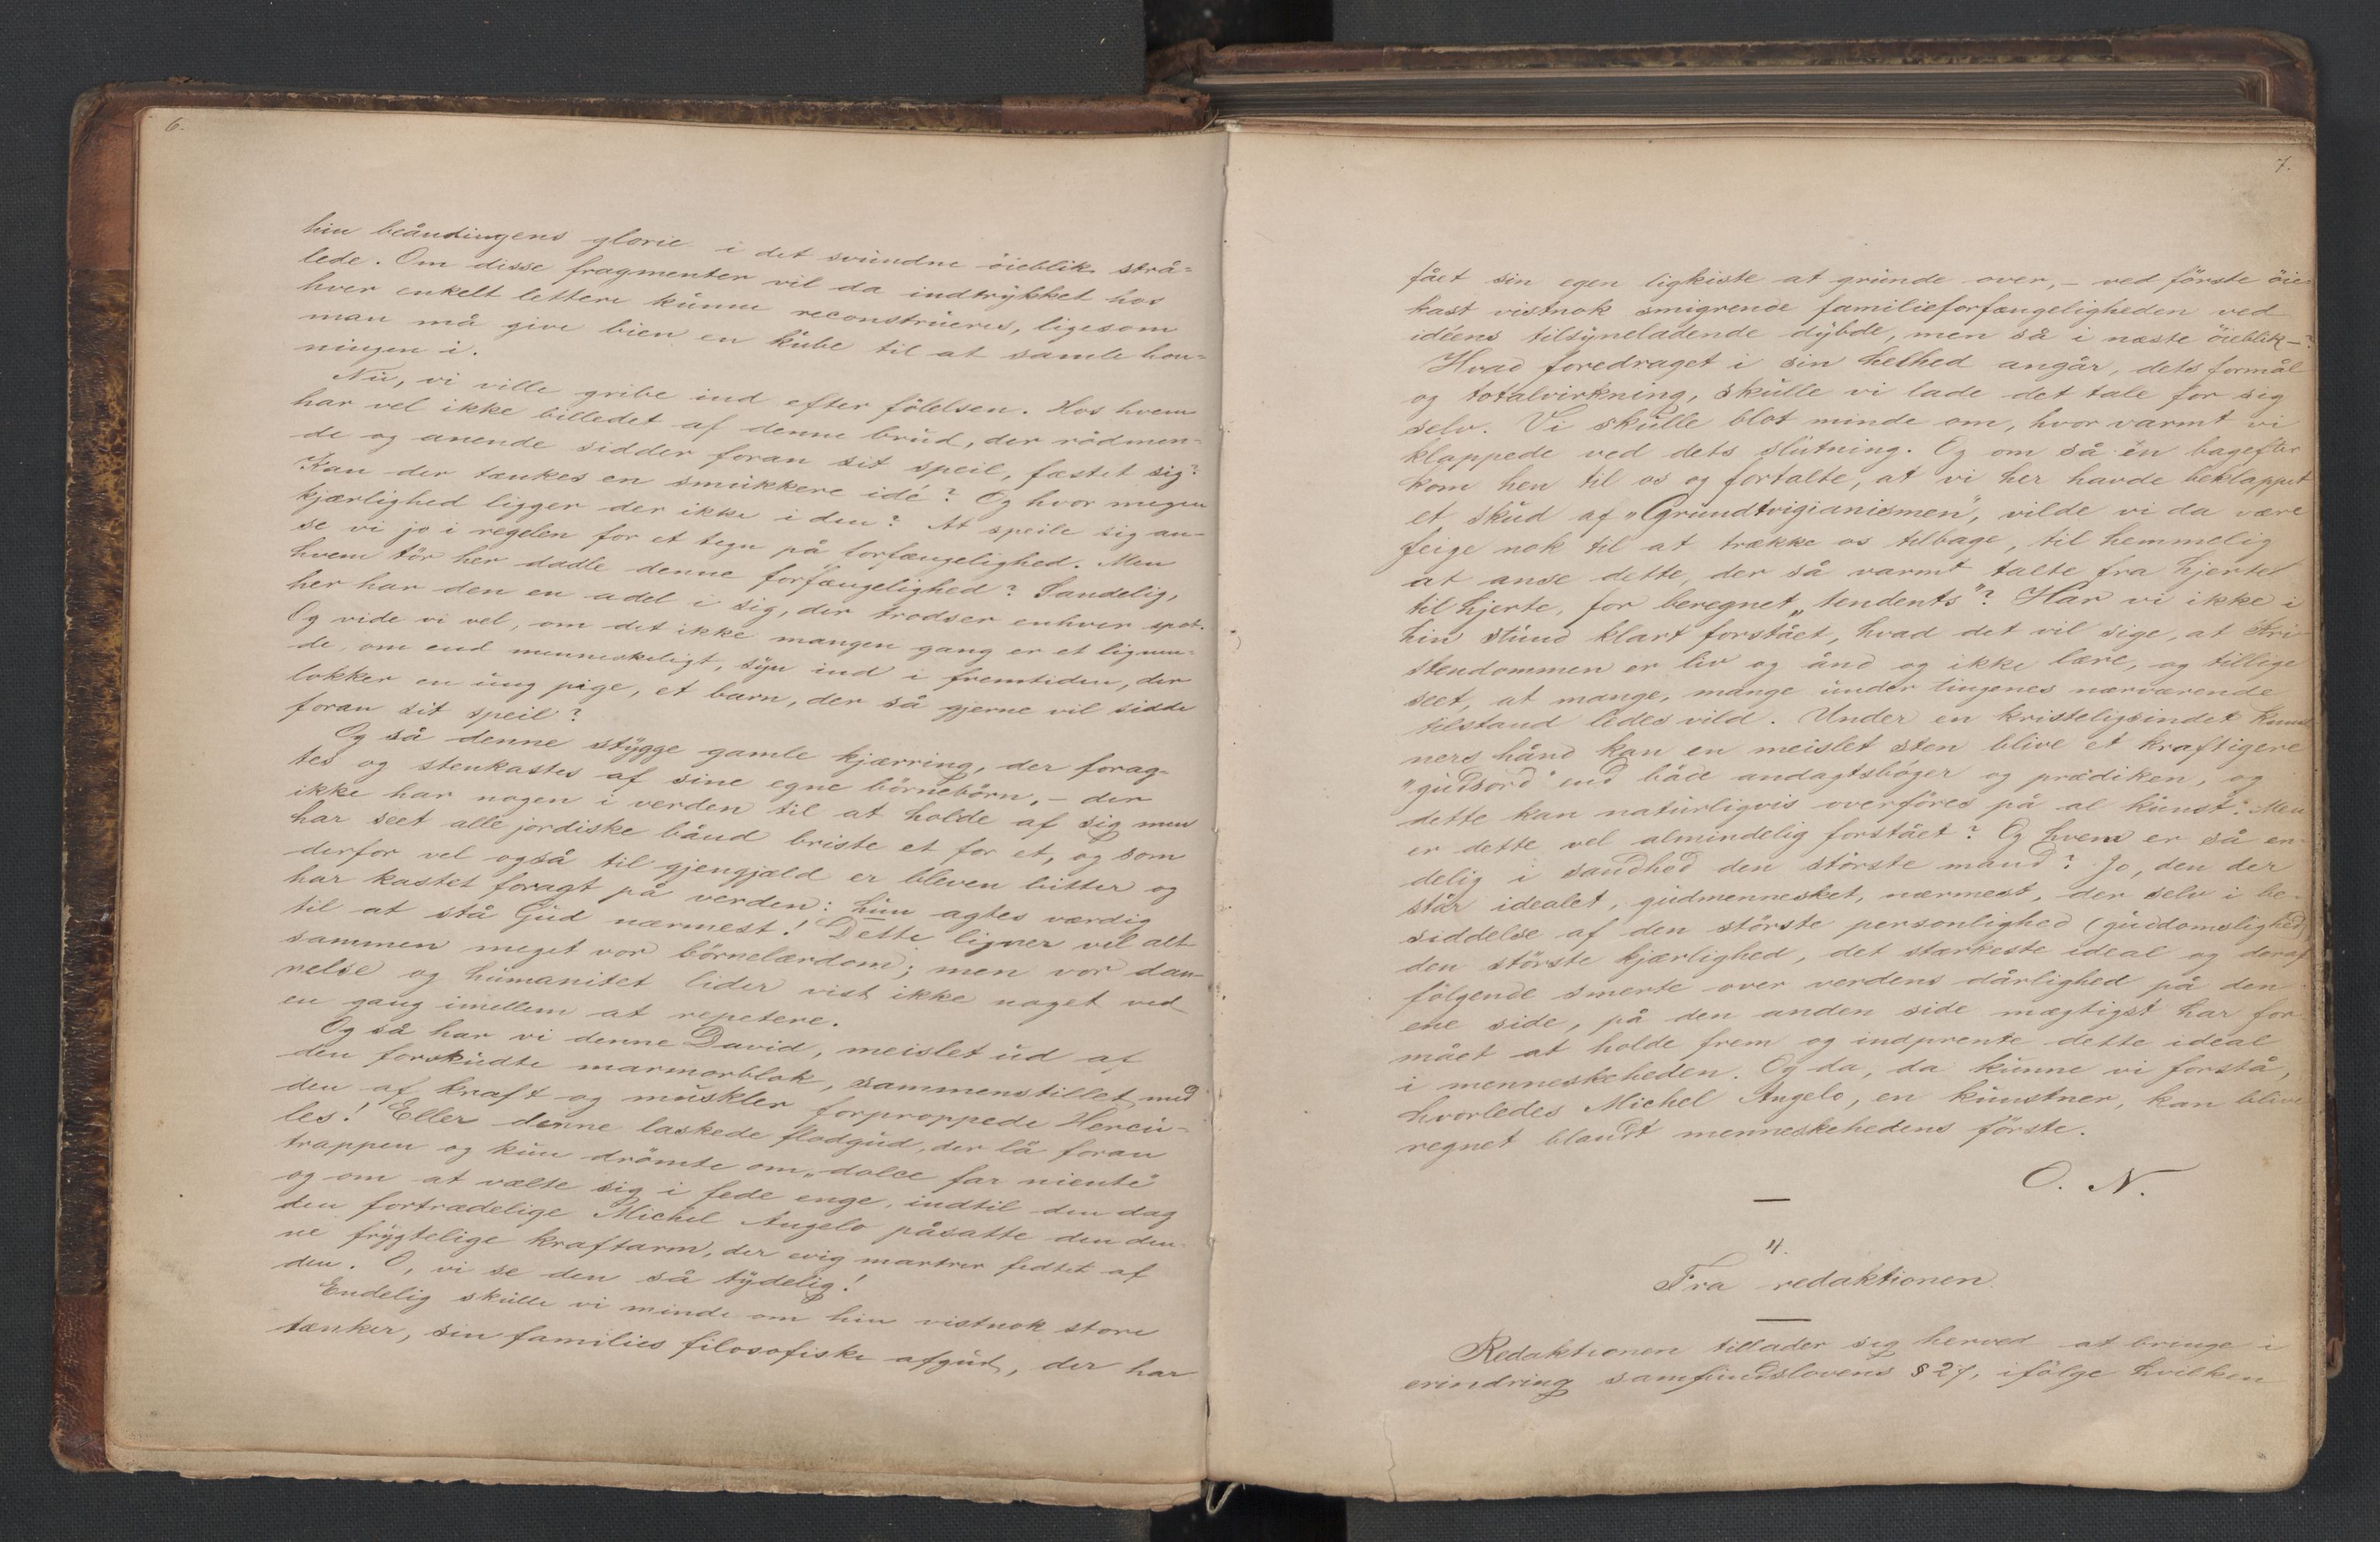 6.
hin beåndingens glorie i det svundne öieblik strå=
lede. Om disse fragmenter vil da indtrykket hos
hver enkelt lettere kunne reconstrueres, ligesom
man må give bien en kube til at samle hon=
ningen i.
Nu, vi ville gribe ind efter fölelsen. Hos hvem
har vel ikke billedet af denne brud, der rödmen=
de og anende sidder foran sit speil, fæstet sig?
Kan der tænkes en smukkere idé? Og hvor megen
kjærlighed ligger der ikke i den? At speile sig an-
se vi jo i regelen for et tegn på forfængelighed. Men
hvem tör her dadle denne forfængelighed? Sandelig,
her har den en adel i sig, der trodser enhver spot.
Og vide vi vel, om det ikke mangen gang er et lignen=
de, om end menneskeligt, syn ind i fremtiden, der
lokker en ung pige, et barn, der så gjerne vil sidde
foran sit speil?
Og så denne stygge gamle kjærring, der forag=
tes og stenkastes af sine egne börnebörn, – der
ikke har nogen i verden til at holde af sig men
har seet alle jordiske bånd briste et for et, og som
derfor vel også til gjengjæld er bleven bitter og
har kastet foragt på verden: hun agtes værdig
til at stå Gud nærmest! Dette ligner vel alt
sammen meget vor börnelærdom; men vor dan-
nelse og humanitet lider vist ikke noget ved
en gang imellem at repetere.
Og så har vi denne David, meislet ud af
den forskudte marmorblok, sammenstillet med
den af kraft og muskler forproppede Hercu=
les! Eller denne laskede flodgud, der lå foran
trappen og kun drömte om „dolce far niente"
og om at vælte sig i fede enge, indtil den dag
den fortrædelige Michel Angelo påsatte den den-
ne frygtelige kraftarm, der evig martrer fedtet af
den. O, vi se den så tydelig!
Endelig skulle vi minde om hin vistnok store
tænker, sin families filosofiske afgud, der har
7.
fået sin egen ligkiste at grunde over, – ved förste öie
kast vistnok smigrende familieforfængeligheden ved
idéens tilsyneladende dybde, men så i næste öieblik –?
Hvad foredraget i sin helhed angår, dets formål
og totalvirkning, skulle vi lade det tale for sig
selv. Vi skulle blot minde om, hvor varmt vi
klappede ved dets slutning. Og om så én bagefter
kom hen til os og fortalte, at vi her havde beklappet
et skud af „Grundtvigianismen", vilde vi da være
feige nok til at trække os tilbage, til hemmelig
at anse dette, der så varmt talte fra hjerte
til hjerte, for beregnet „tendents"? Har vi ikke i
hin stund klart forstået, hvad det vil sige, at kri-
stendommen er liv og ånd og ikke lære, og tillige
seet, at mange, mange under tingenes nærværende
tilstand ledes vild. Under en kristeligsindet kunst
ners hånd kan en meislet sten blive et kraftigere
"gudsord" end både andagtsböger og prædiken, og
dette kan naturligvis overföres på al kunst. Men
er dette vel almindelig forstået? Og hvem er så en-
delig i sandhed den störste mand? Jo, den der
står idealet, gudmennesket, nærmest, der selv i be-
siddelse af den störste personlighed (guddomslighed)
den störste kjærlighed, det stærkeste ideal og deraf
fölgende smerte over verdens dårlighed på den
ene side, på den anden side mægtigst har for-
mået at holde frem og indprente dette ideal
i menneskeheden. Og da, da kunne vi forstå,
hvorledes Michel Angelo, en kunstner, kan blive
regnet blandt menneskehedens förste.
O. N.
4.
Fra redaktionen.
Redaktionen tillader sig herved at bringe i
erindring samfundslovens § 27, ifölge hvilken